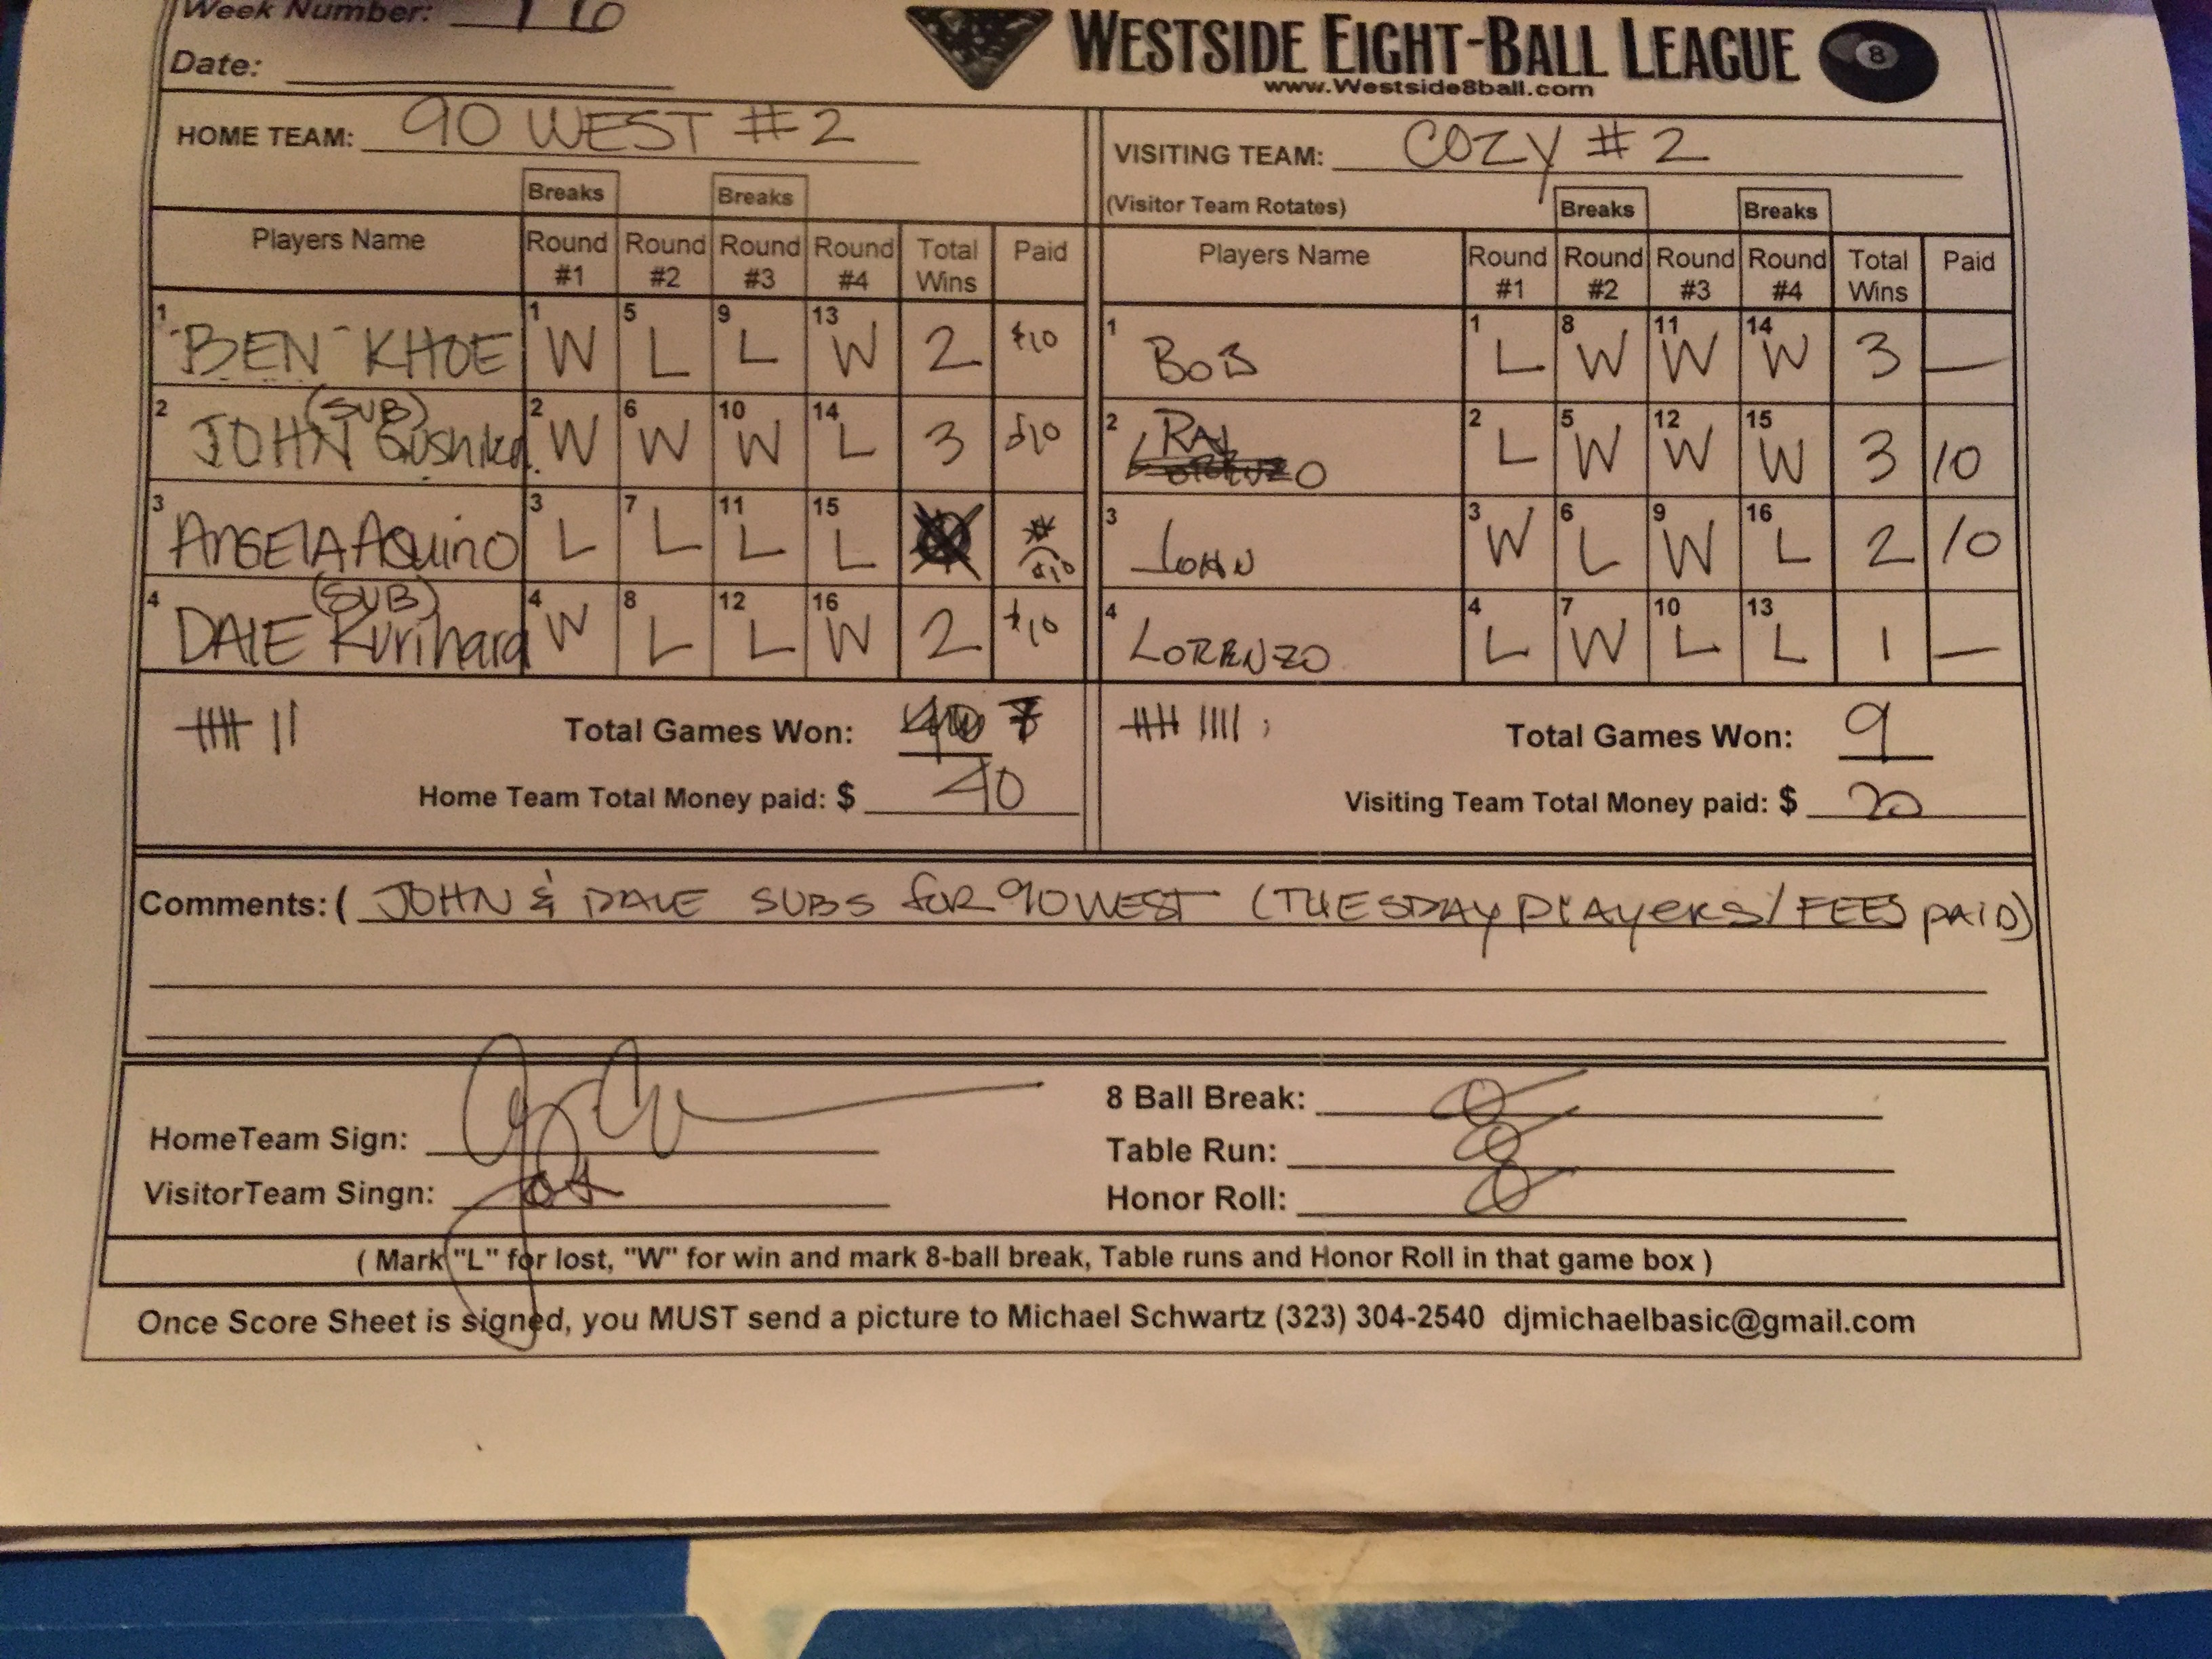 Week Number: 16
WESTSIDE EIGHT-BALL LEAGUE 8
www.Westside8ball.com
Date:
HOME TEAM: 90 WEST #2
VISITING TEAM: COZY #2
(Visitor Team Rotates)
Breaks Breaks
Breaks Breaks
Players Name Round #1 Round #2 Round #3 Round #4 Total Wins Paid
Players Name Round #1 Round #2 Round #3 Round #4 Total Wins Paid
1 "BEN" KHOE 1 W 5 L 9 L 13 W 2 $10
1 BOB 1 L 8 W 11 W 14 W 3 —
2 JOHN (SUB) 2 W 6 W 10 W 14 L 3 $10
2 RAJ 2 L 5 W 12 W 15 W 3 10
3 ANGELA AQUINO 3 L 7 L 11 L 15 L $10
3 JOHN 3 W 6 L 9 W 16 L 2 10
4 DALE (SUB) Kurihara 4 W 8 L 12 L 16 W 2 $10
4 LORENZO 4 L 7 W 10 L 13 L 1 —
Total Games Won: 7
Total Games Won: 9
Home Team Total Money paid: $ 40
Visiting Team Total Money paid: $ 20
Comments: ( JOHN & DALE SUBS for 90 WEST (TUESDAY PLAYERS/FEES PAID)
HomeTeam Sign:
VisitorTeam Singn:
8 Ball Break: 0
Table Run: 0
Honor Roll: 0
( Mark "L" for lost, "W" for win and mark 8-ball break, Table runs and Honor Roll in that game box )
Once Score Sheet is signed, you MUST send a picture to Michael Schwartz (323) 304-2540 djmichaelbasic@gmail.com